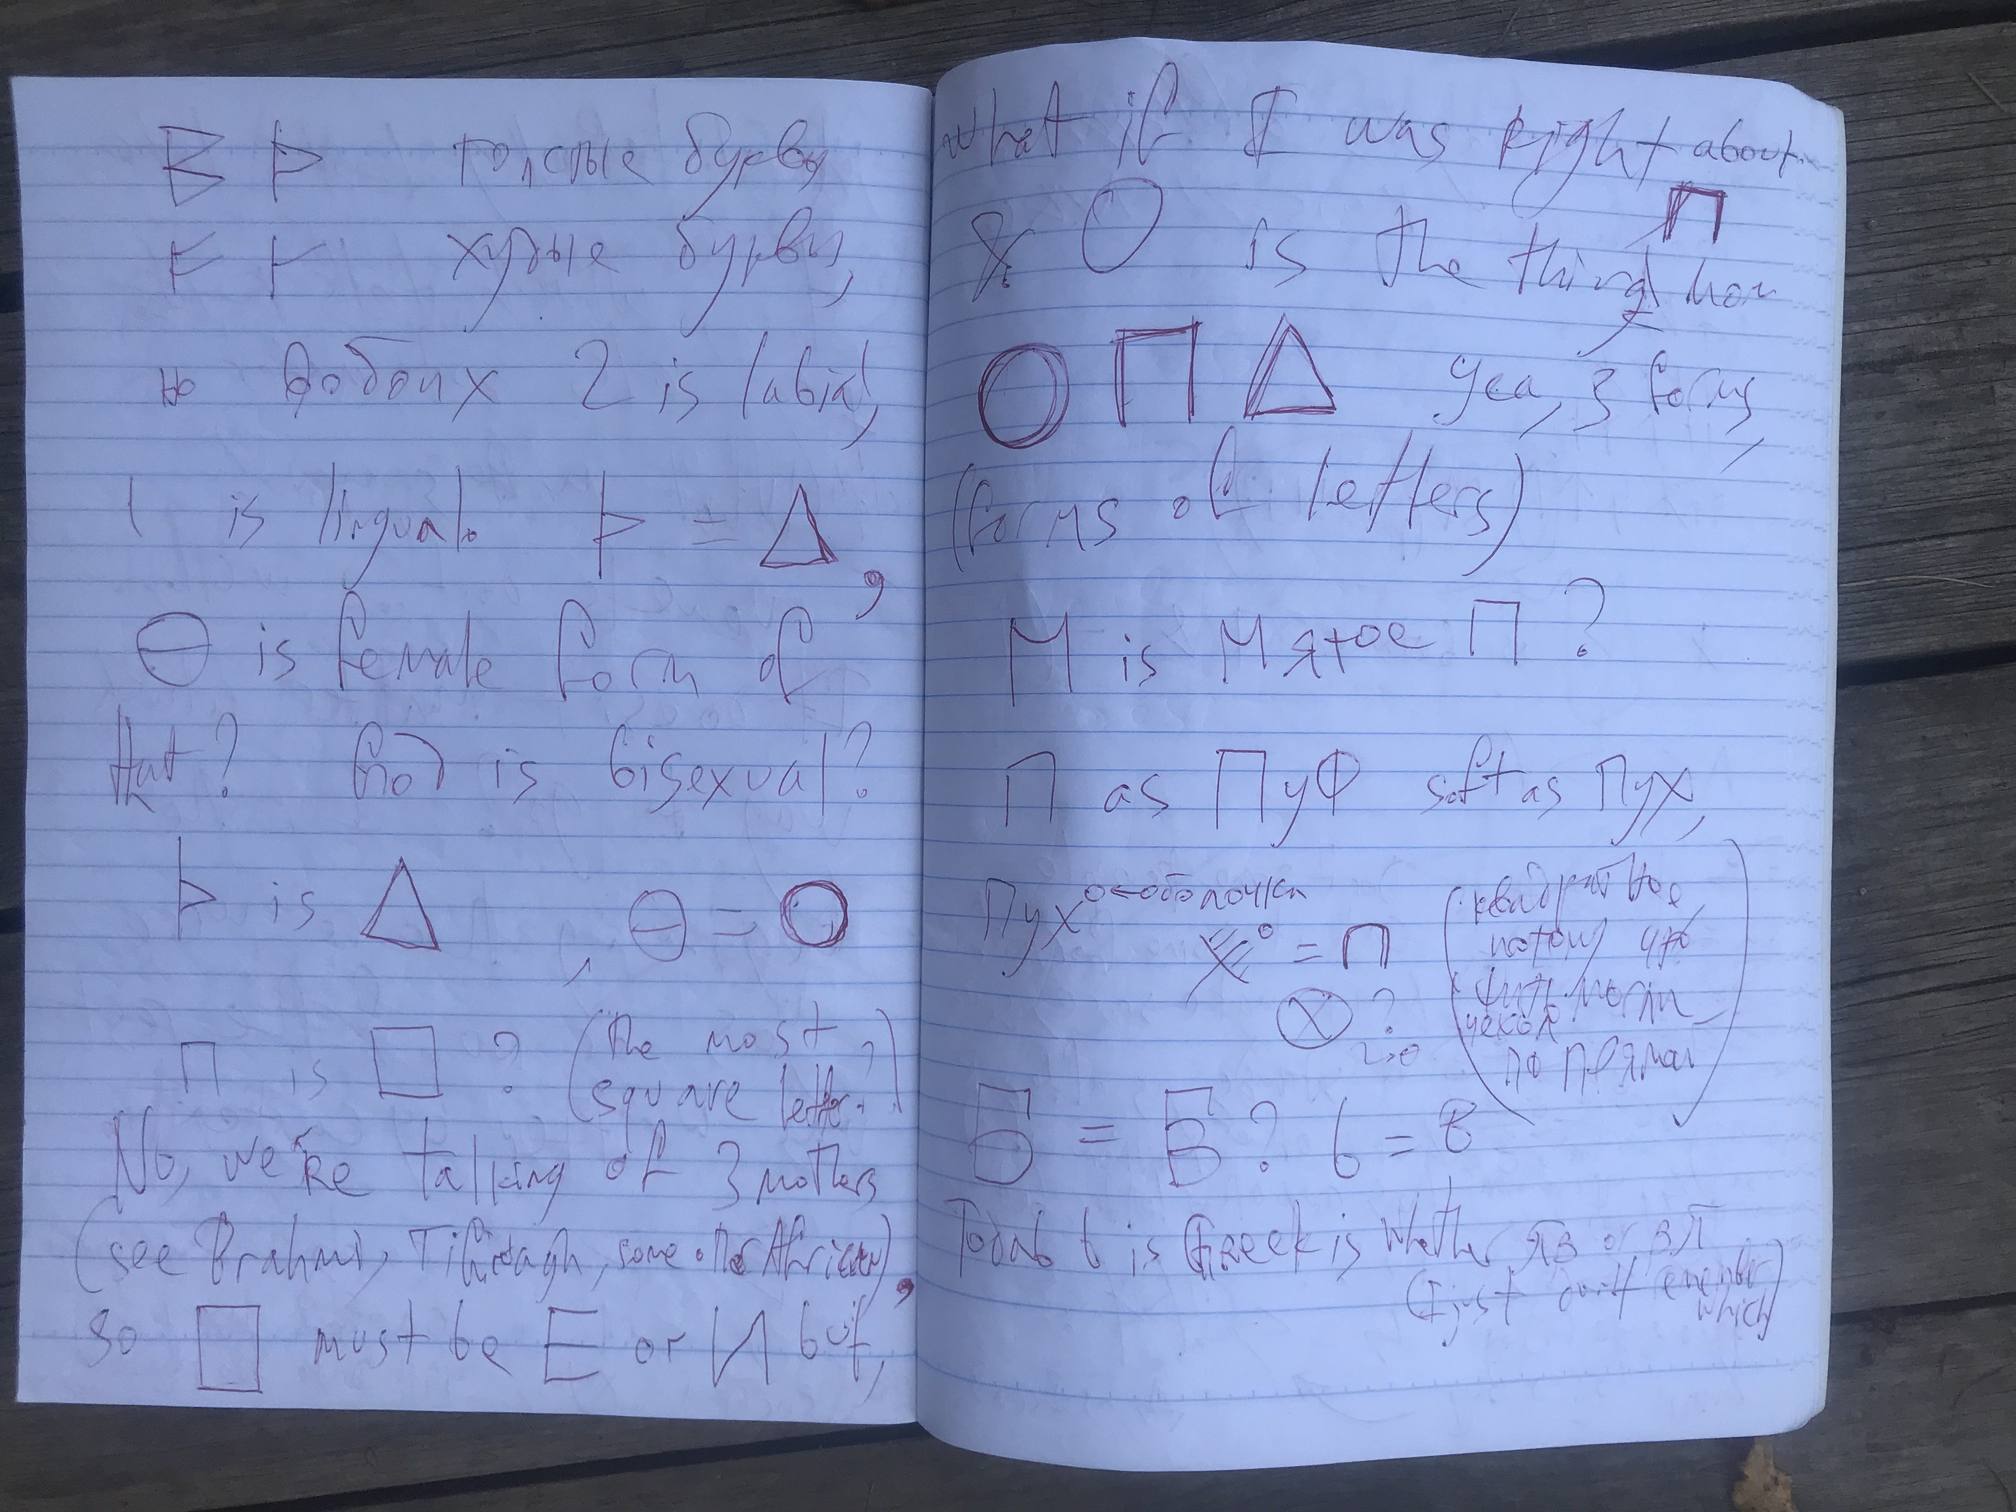 B Þ толстые буквы
F Г худые буквы,
но в обоих 2 is labial,
1 is lingual. Þ = Δ,
Θ is female form of
that? God is bisexual?
Þ is Δ, Θ = O
П is □ ? (the most
square letter?)
No, we're talking of 3 mothers
(see Brahmi, Tifinagh, some other African),
so □ must be E or И but,
What if I was right about
X O is the thing
П
О П Δ yea, 3 forms,
(forms of letters)
М is Мятое П ?
П as ПуФ soft as Пух,
Пух оболочки
= П
(квадратное,
потому что
могли
по прямой)
Ⓧ ?
Б = B ? 6 = в
is Greek is whether яз or зя
(I just don't
which)